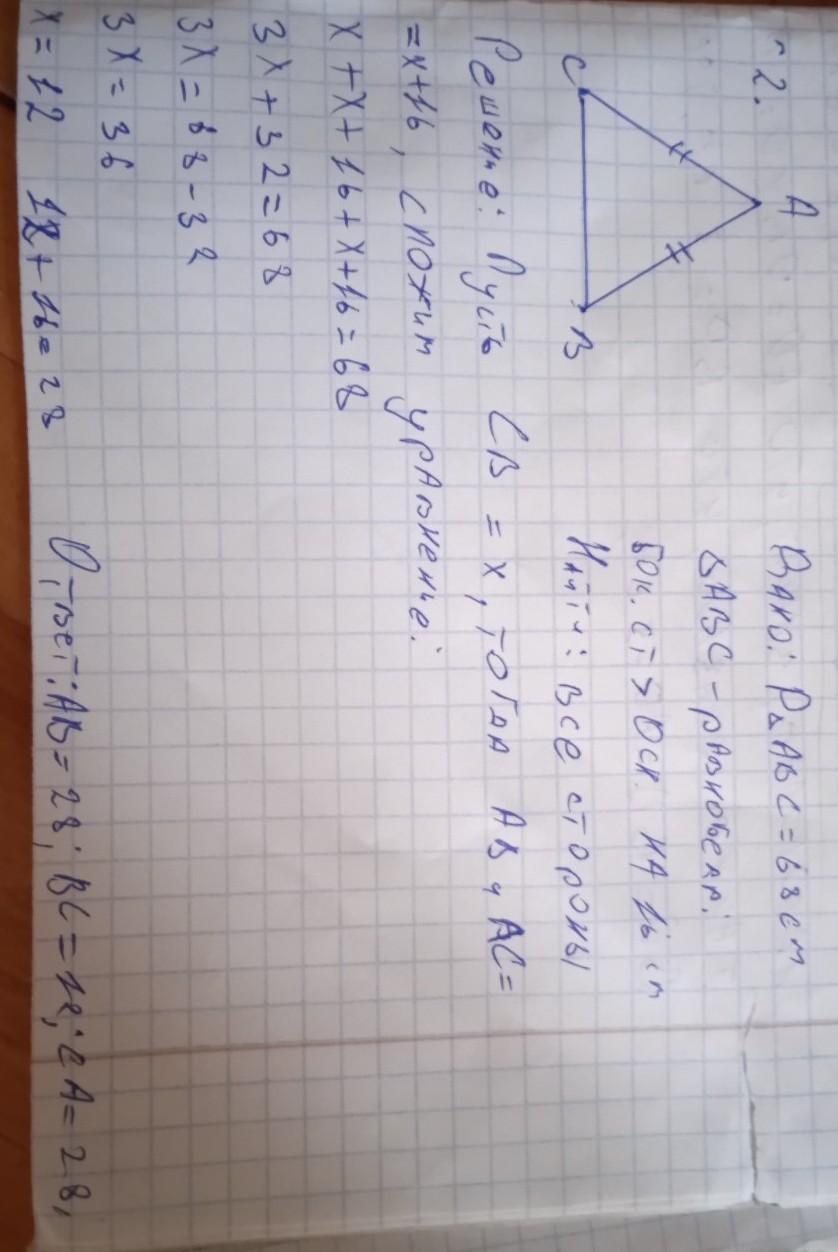 2.
A
C
B
Дано: P△ABC = 68 см
△ABC - равнобедр.
Бок. ст > Осн. на 16 см
Найти: все стороны
Решение: Пусть CB = x, тогда AB и AC =
= x+16, сложим уравнение:
x + x + 16 + x + 16 = 68
3x + 32 = 68
3x = 68 - 32
3x = 36
x = 12 12 + 16 = 28
Ответ: AB = 28; BC = 12; CA = 28.